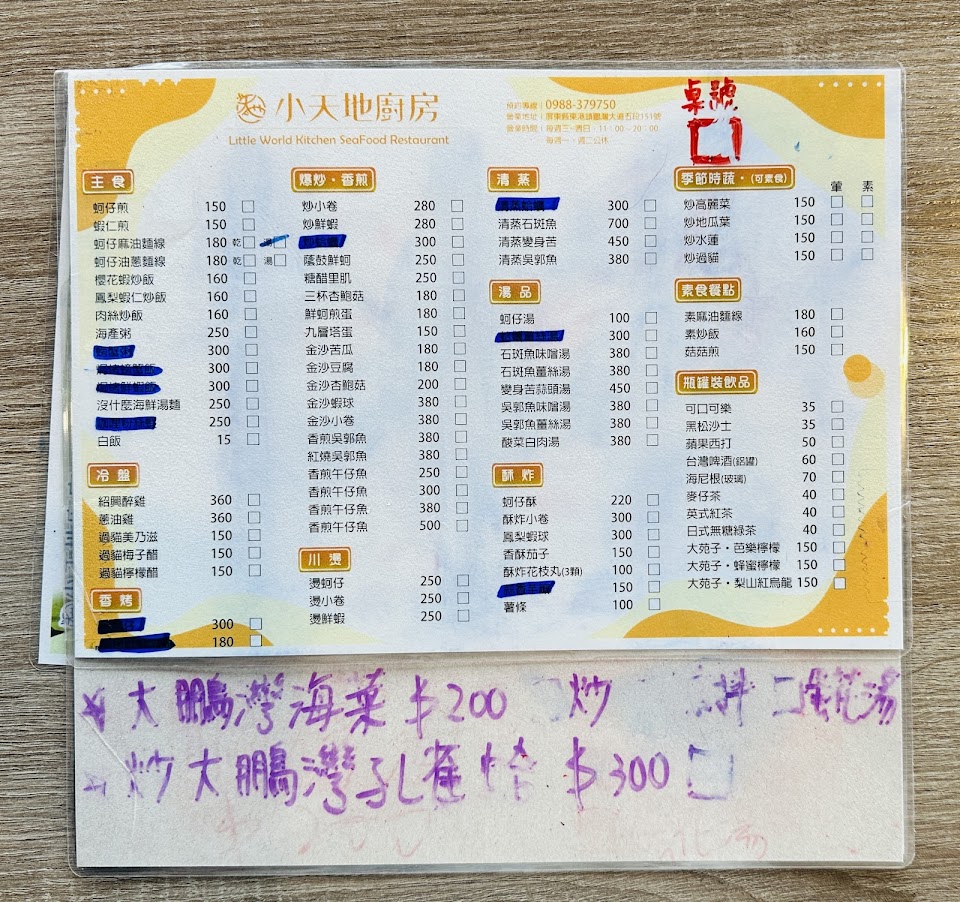 小天地廚房
Little World Kitchen SeaFood Restaurant
預約專線｜0988-379750
營業地址｜屏東縣東港鎮鵬灣大道五段151號
營業時間｜每週三~週日，11：00 - 20：00
每週一、週二公休
桌號
主食
蚵仔煎 150
蝦仁煎 150
蚵仔麻油麵線 180 乾 湯
蚵仔油蔥麵線 180 乾 湯
櫻花蝦炒飯 160
鳳梨蝦仁炒飯 160
肉絲炒飯 160
海產粥 250
300
300
300
沒什麼海鮮湯麵 250
250
白飯 15
冷盤
紹興醉雞 360
蔥油雞 360
過貓美乃滋 150
過貓梅子醋 150
過貓檸檬醋 150
香烤
300
180
爆炒・香煎
炒小卷 280
炒鮮蝦 280
300
蔭鼓鮮蚵 250
糖醋里肌 250
三杯杏鮑菇 180
鮮蚵煎蛋 180
九層塔蛋 150
金沙苦瓜 180
金沙豆腐 180
金沙杏鮑菇 200
金沙蝦球 380
金沙小卷 380
香煎吳郭魚 380
紅燒吳郭魚 380
香煎午仔魚 250
香煎午仔魚 300
香煎午仔魚 380
香煎午仔魚 500
川燙
燙蚵仔 250
燙小卷 250
燙鮮蝦 250
清蒸
300
清蒸石斑魚 700
清蒸變身苦 450
清蒸吳郭魚 380
湯品
蚵仔湯 100
300
石斑魚味噌湯 380
石斑魚薑絲湯 380
變身苦蒜頭湯 450
吳郭魚味噌湯 380
吳郭魚薑絲湯 380
酸菜白肉湯 380
酥炸
蚵仔酥 220
酥炸小卷 300
鳳梨蝦球 300
香酥茄子 150
酥炸花枝丸(3顆) 100
150
薯條 100
季節時蔬・(可素食) 葷 素
炒高麗菜 150
炒地瓜葉 150
炒水蓮 150
炒過貓 150
素食餐點
素麻油麵線 180
素炒飯 160
菇菇煎 150
瓶罐裝飲品
可口可樂 35
黑松沙士 35
蘋果西打 50
台灣啤酒(鋁罐) 60
海尼根(玻璃) 70
麥仔茶 40
英式紅茶 40
日式無糖綠茶 40
大苑子・芭樂檸檬 150
大苑子・蜂蜜檸檬 150
大苑子・梨山紅烏龍 150
大鵬灣海菜 $200 炒 拌 蛋花湯
炒大鵬灣孔雀蛤 $300